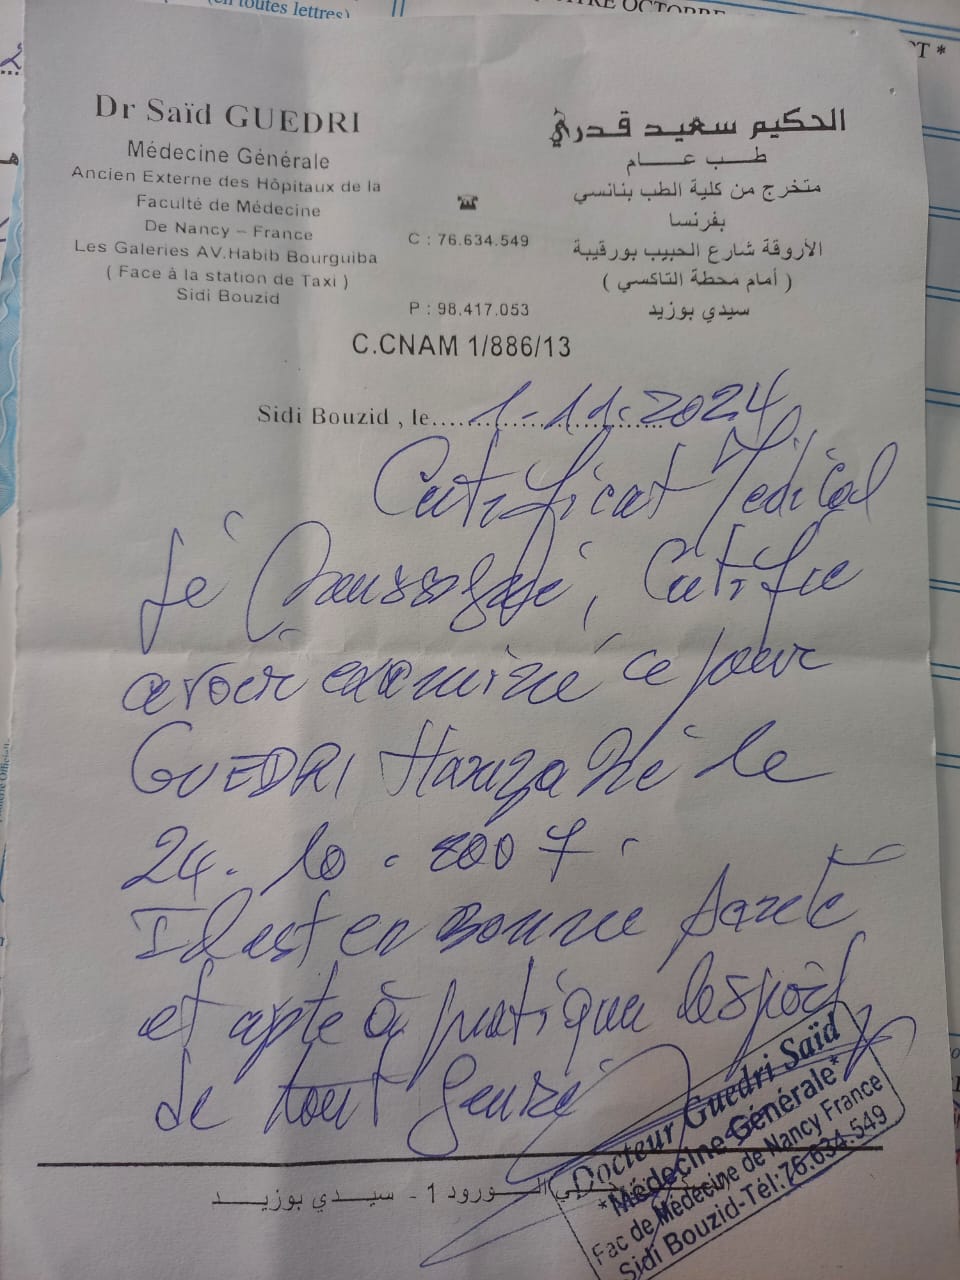 (en toutes lettres)
OCTOBRE
Dr Saïd GUEDRI
Médecine Générale
Ancien Externe des Hôpitaux de la
Faculté de Médecine
De Nancy – France
Les Galeries AV.Habib Bourguiba
( Face à la station de Taxi )
Sidi Bouzid
الحكيم سعيد قدري
طب عام
متخرج من كلية الطب بنانسي
بفرنسا
الأروقة شارع الحبيب بورقيبة
( أمام محطة التاكسي )
سيدي بوزيد
C : 76.634.549
P : 98.417.053
C.CNAM 1/886/13
Sidi Bouzid , le 1-11-2024
Certificat Médical
Je Soussigné, Certifie
avoir examiné ce jour
GUEDRI Hamza Né le
24.10.2007.
Il est en Bonne Santé
et apte à pratiquer le sport
de tout genre
الورود 1 - سيدي بوزيد
Docteur Guedri Saïd
*Médecine Générale*
Fac de Médecine de Nancy France
Sidi Bouzid-Tél:76.634.549